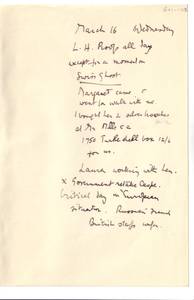 March 16 Wednesday
L. H. Proofs all day
except for a moment on
Swiss Ghost.
Margaret came &
went for walk with me
I bought her 2 silver brooches
at Mrs
1750 box 12/6
for us.
Laura working with her.
x Government
Critical day in European
situation. Russian French
British